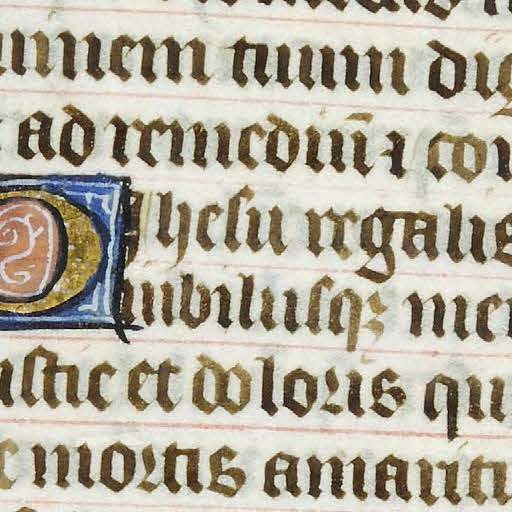 numem tuum dig
ad remediū ⁊ co
O Ihesu regalis
iubilusqꝫ me
ustie et doloris qu
mortis amanti